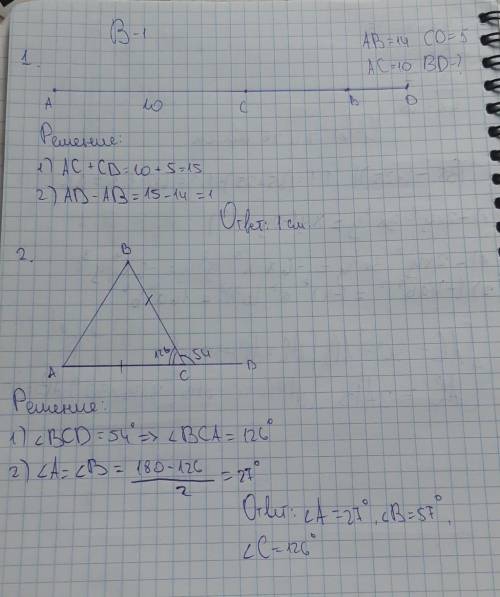 В-1
AB=14 CD=5
AC=10 BD-?
1.
A 10 C B D
Решение:
1) AC+CD=10+5=15
2) AD-AB=15-14=1
Ответ: 1 см
2.
B
126 54
A C D
Решение:
1) ∠BCD=54°=>∠BCA=126°
2) ∠A=∠B=180-126/2=27°
Ответ: ∠A=27°, ∠B=57°,
∠C=126°